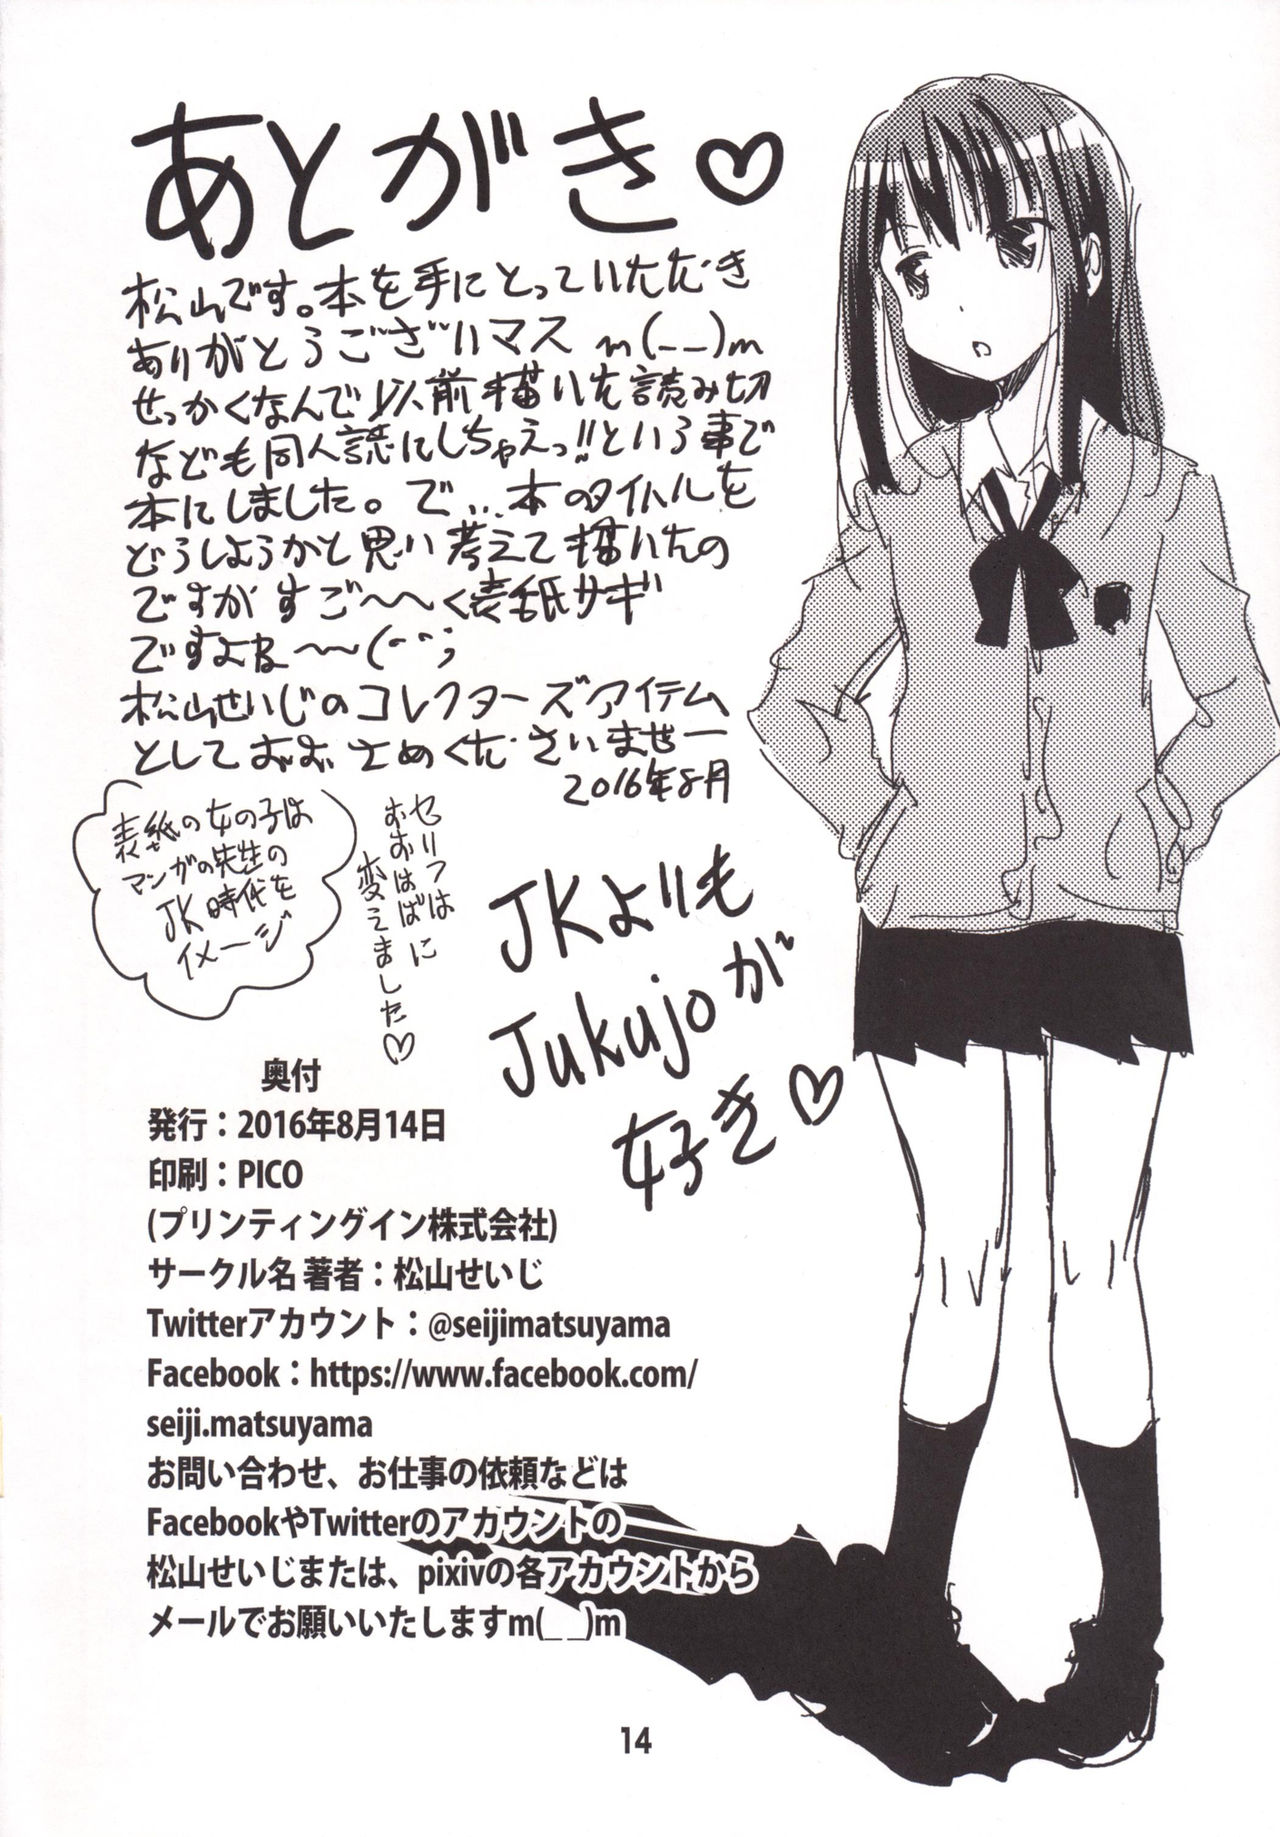 あとがき♡
松山です。本を手にとっていただき
ありがとうございマス m(__)m
せっかくなんで以前描いた読み切
なども同人誌にしちゃえっ!!という事で
本にしました。で…本のタイトルを
どうしようかと思い考えて描いたの
ですがすご〜〜く表紙サギ
ですよね〜〜(^^;
松山せいじのコレクターズアイテム
としておおさめくださいませー
2016年8月
表紙の女の子は
マンガの先生の
JK時代を
イメージ
セリフは
おおはばに
変えました♡
JKよりも
Jukujoが
好き♡
奥付
発行：2016年8月14日
印刷：PICO
(プリンティングイン株式会社)
サークル名 著者：松山せいじ
Twitterアカウント：@seijimatsuyama
Facebook：https://www.facebook.com/
seiji.matsuyama
お問い合わせ、お仕事の依頼などは
FacebookやTwitterのアカウントの
松山せいじまたは、pixivの各アカウントから
メールでお願いいたしますm(_ _)m
14